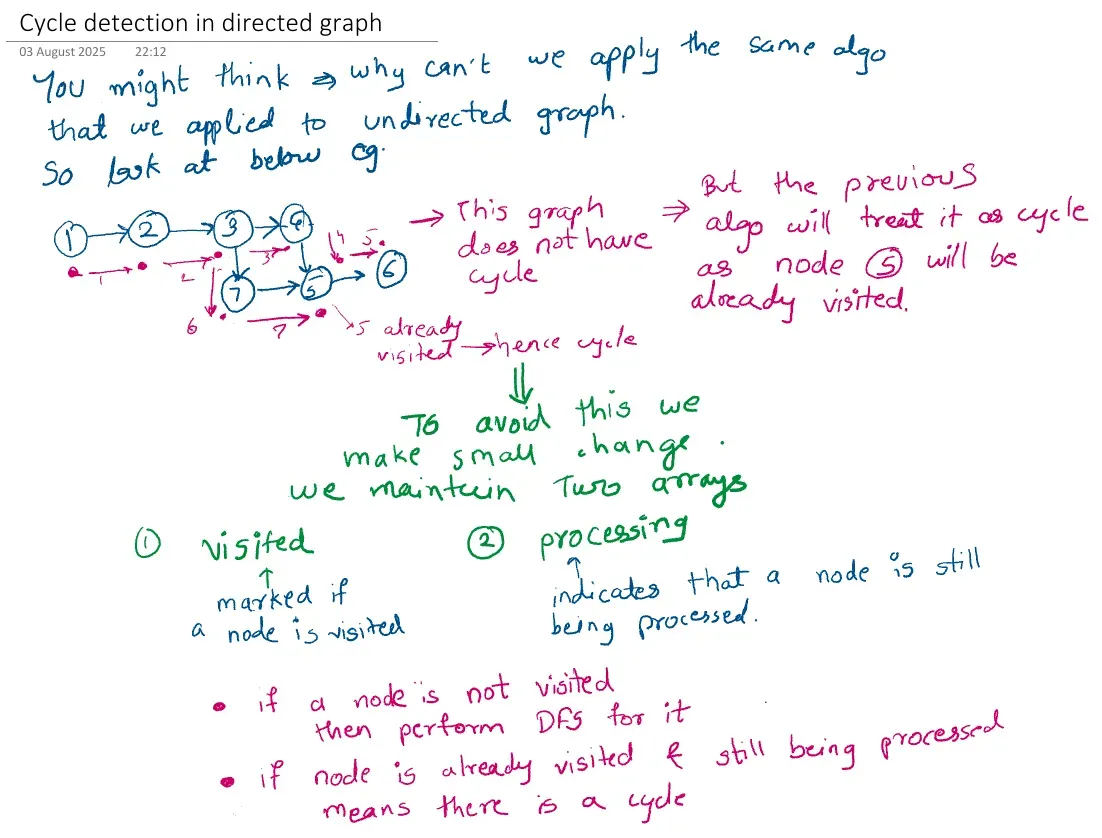 Cycle detection in directed graph
03 August 2025 22:12
You might think ⇒ why can't we apply the same algo
that we applied to undirected graph.
So look at below eg.
1 → 2 → 3 → 4
1 2 3 4 5
7 → 5 → 6
6 7
→ This graph
does not have
cycle
⇒ But the previous
algo will treat it as cycle
as node 5 will be
already visited.
5 already
visited → hence cycle
To avoid this we
make small change.
we maintain Two arrays
① visited
marked if
a node is visited
② processing
indicates that a node is still
being processed.
• if a node is not visited
then perform DFS for it
• if node is already visited & still being processed
means there is a cycle